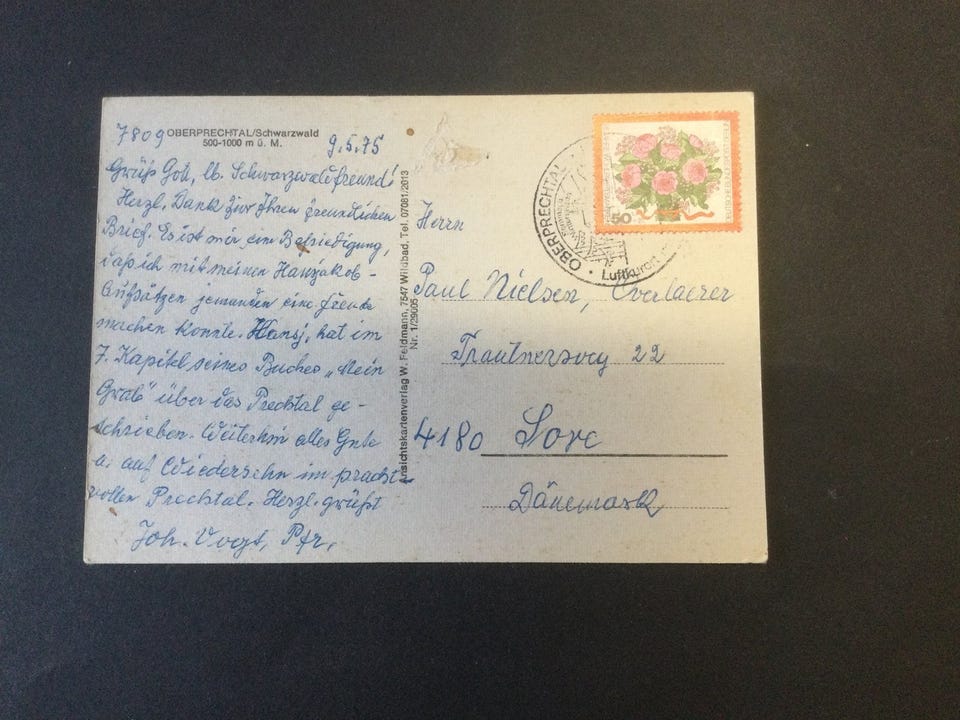 7809 OBERPRECHTAL/Schwarzwald
500-1000 m ü. M.
9.5.75
Grüß Gott, lb. Schwarzwaldfreund!
Herzl. Dank für Ihren freundlichen
Brief. Es ist mir eine Befriedigung,
daß ich mit meinen Hansjakob-
Aufsätzen jemanden eine Freude
machen konnte. Hansj. hat im
7. Kapitel seines Buches „Mein
Grab" über das Prechtal ge-
schrieben. Weiterhin alles Gute
u. auf Wiedersehn im pracht-
vollen Prechtal. Herzl. grüßt
Joh. Vogt, Pfr.
Ansichtskartenverlag W. Feldmann, 7547 Wildbad, Tel. 07081/2013
Nr. 1/29005
OBERPRECHTAL
Luftkurort
50
Herrn
Paul Nielsen, Overlaerer
22
4180 Sorø
Dänemark